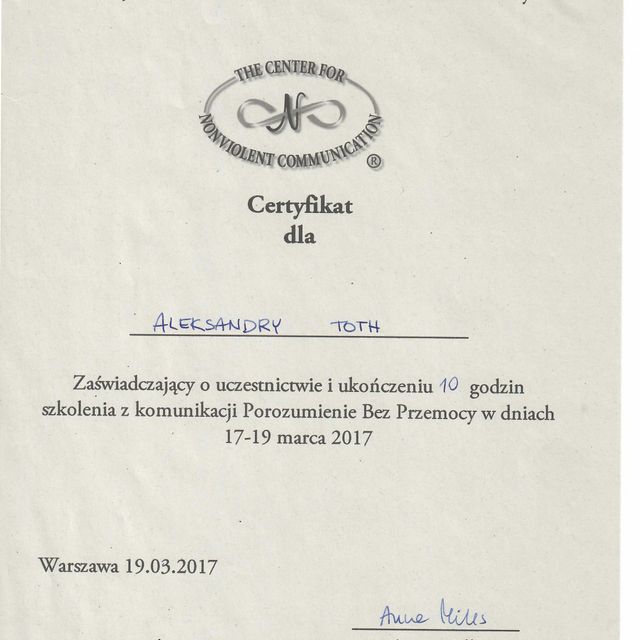 THE CENTER FOR
N
NONVIOLENT COMMUNICATION
®
Certyfikat
dla
ALEKSANDRY TOTH
Zaświadczający o uczestnictwie i ukończeniu 10 godzin
szkolenia z komunikacji Porozumienie Bez Przemocy w dniach
17-19 marca 2017
Warszawa 19.03.2017
Anna Mills